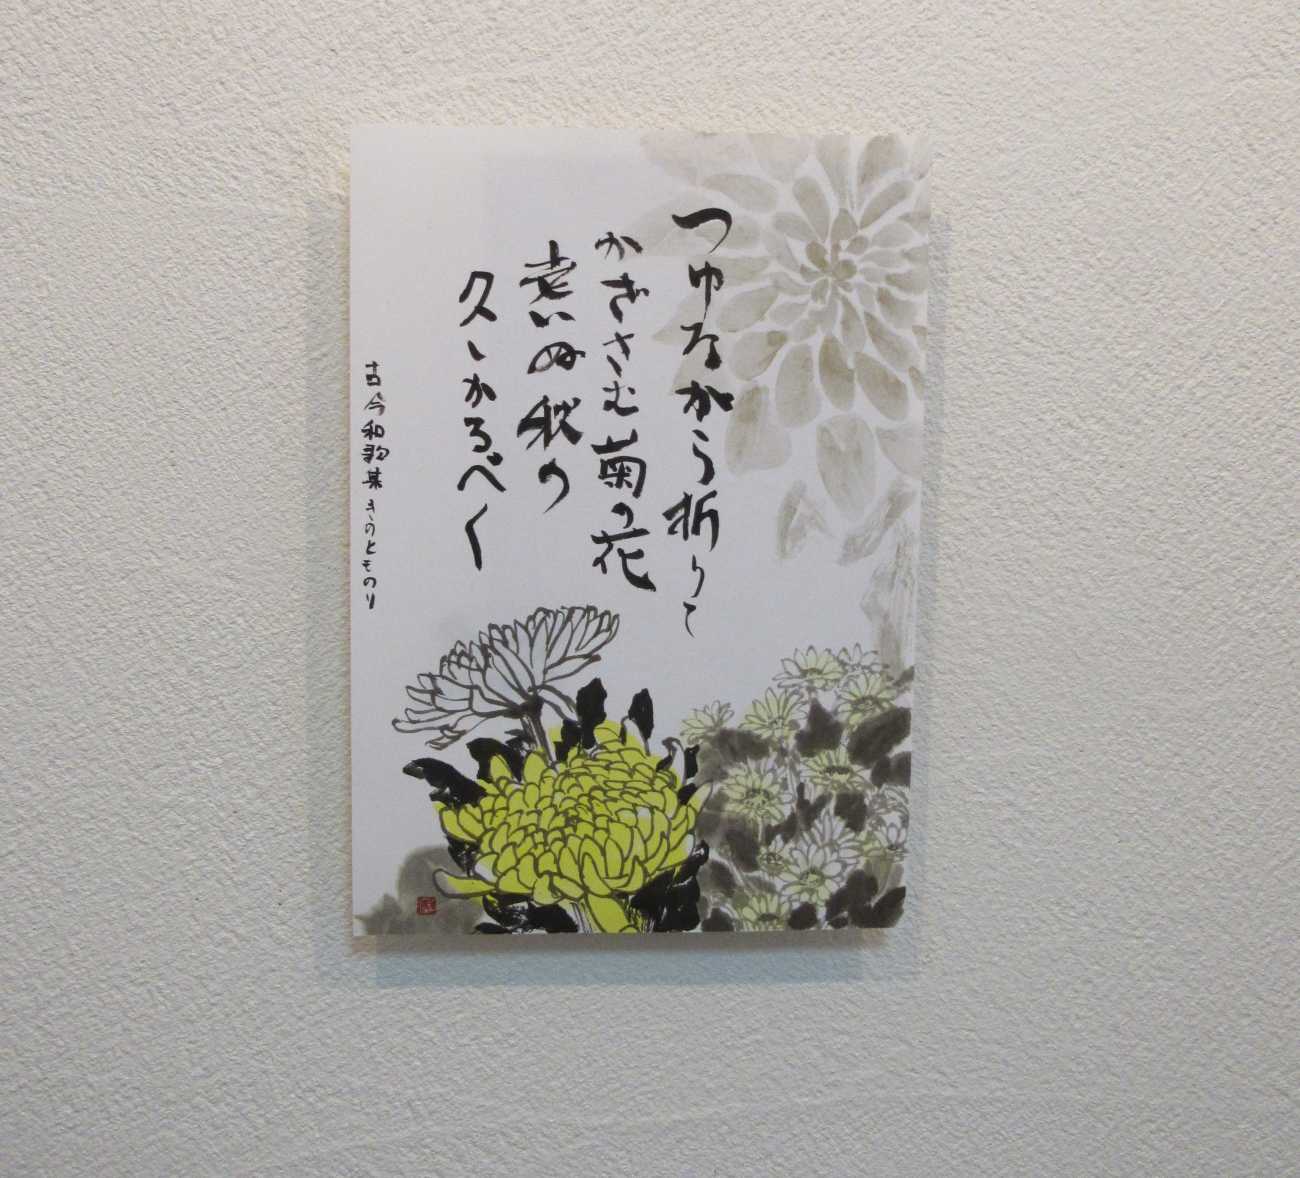 つゆながら折りて
かざさむ菊の花
老いぬ秋の
久しかるべく
古今和歌集 きのとものり